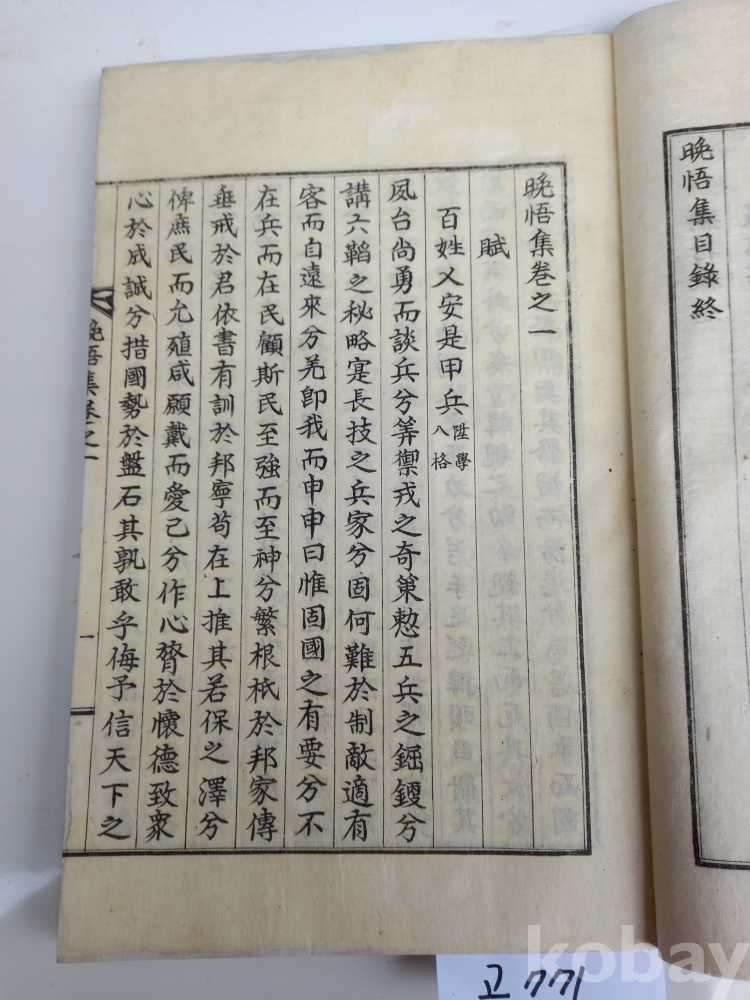 晩悟集目錄終
晩悟集卷之一
賦
百姓乂安是甲兵
陞學
八格
夙台尚勇而談兵兮筭禦戎之奇策懃五兵之鋸鍐兮
講六韜之秘略寔長技之兵家兮固何難於制敵適有
客而自遠來兮羌卽我而申申曰惟固國之有要兮不
在兵而在民顧斯民至強而至神兮繫根柢於邦家傳
垂戒於君依書有訓於邦寧苟在上推其若保之澤兮
俾庶民而允殖咸願戴而愛己兮作心膂於懷德致衆
心於成誠兮措國勢於盤石其孰敢乎侮予信天下之
晩悟集卷之一
一
kobay
고 771